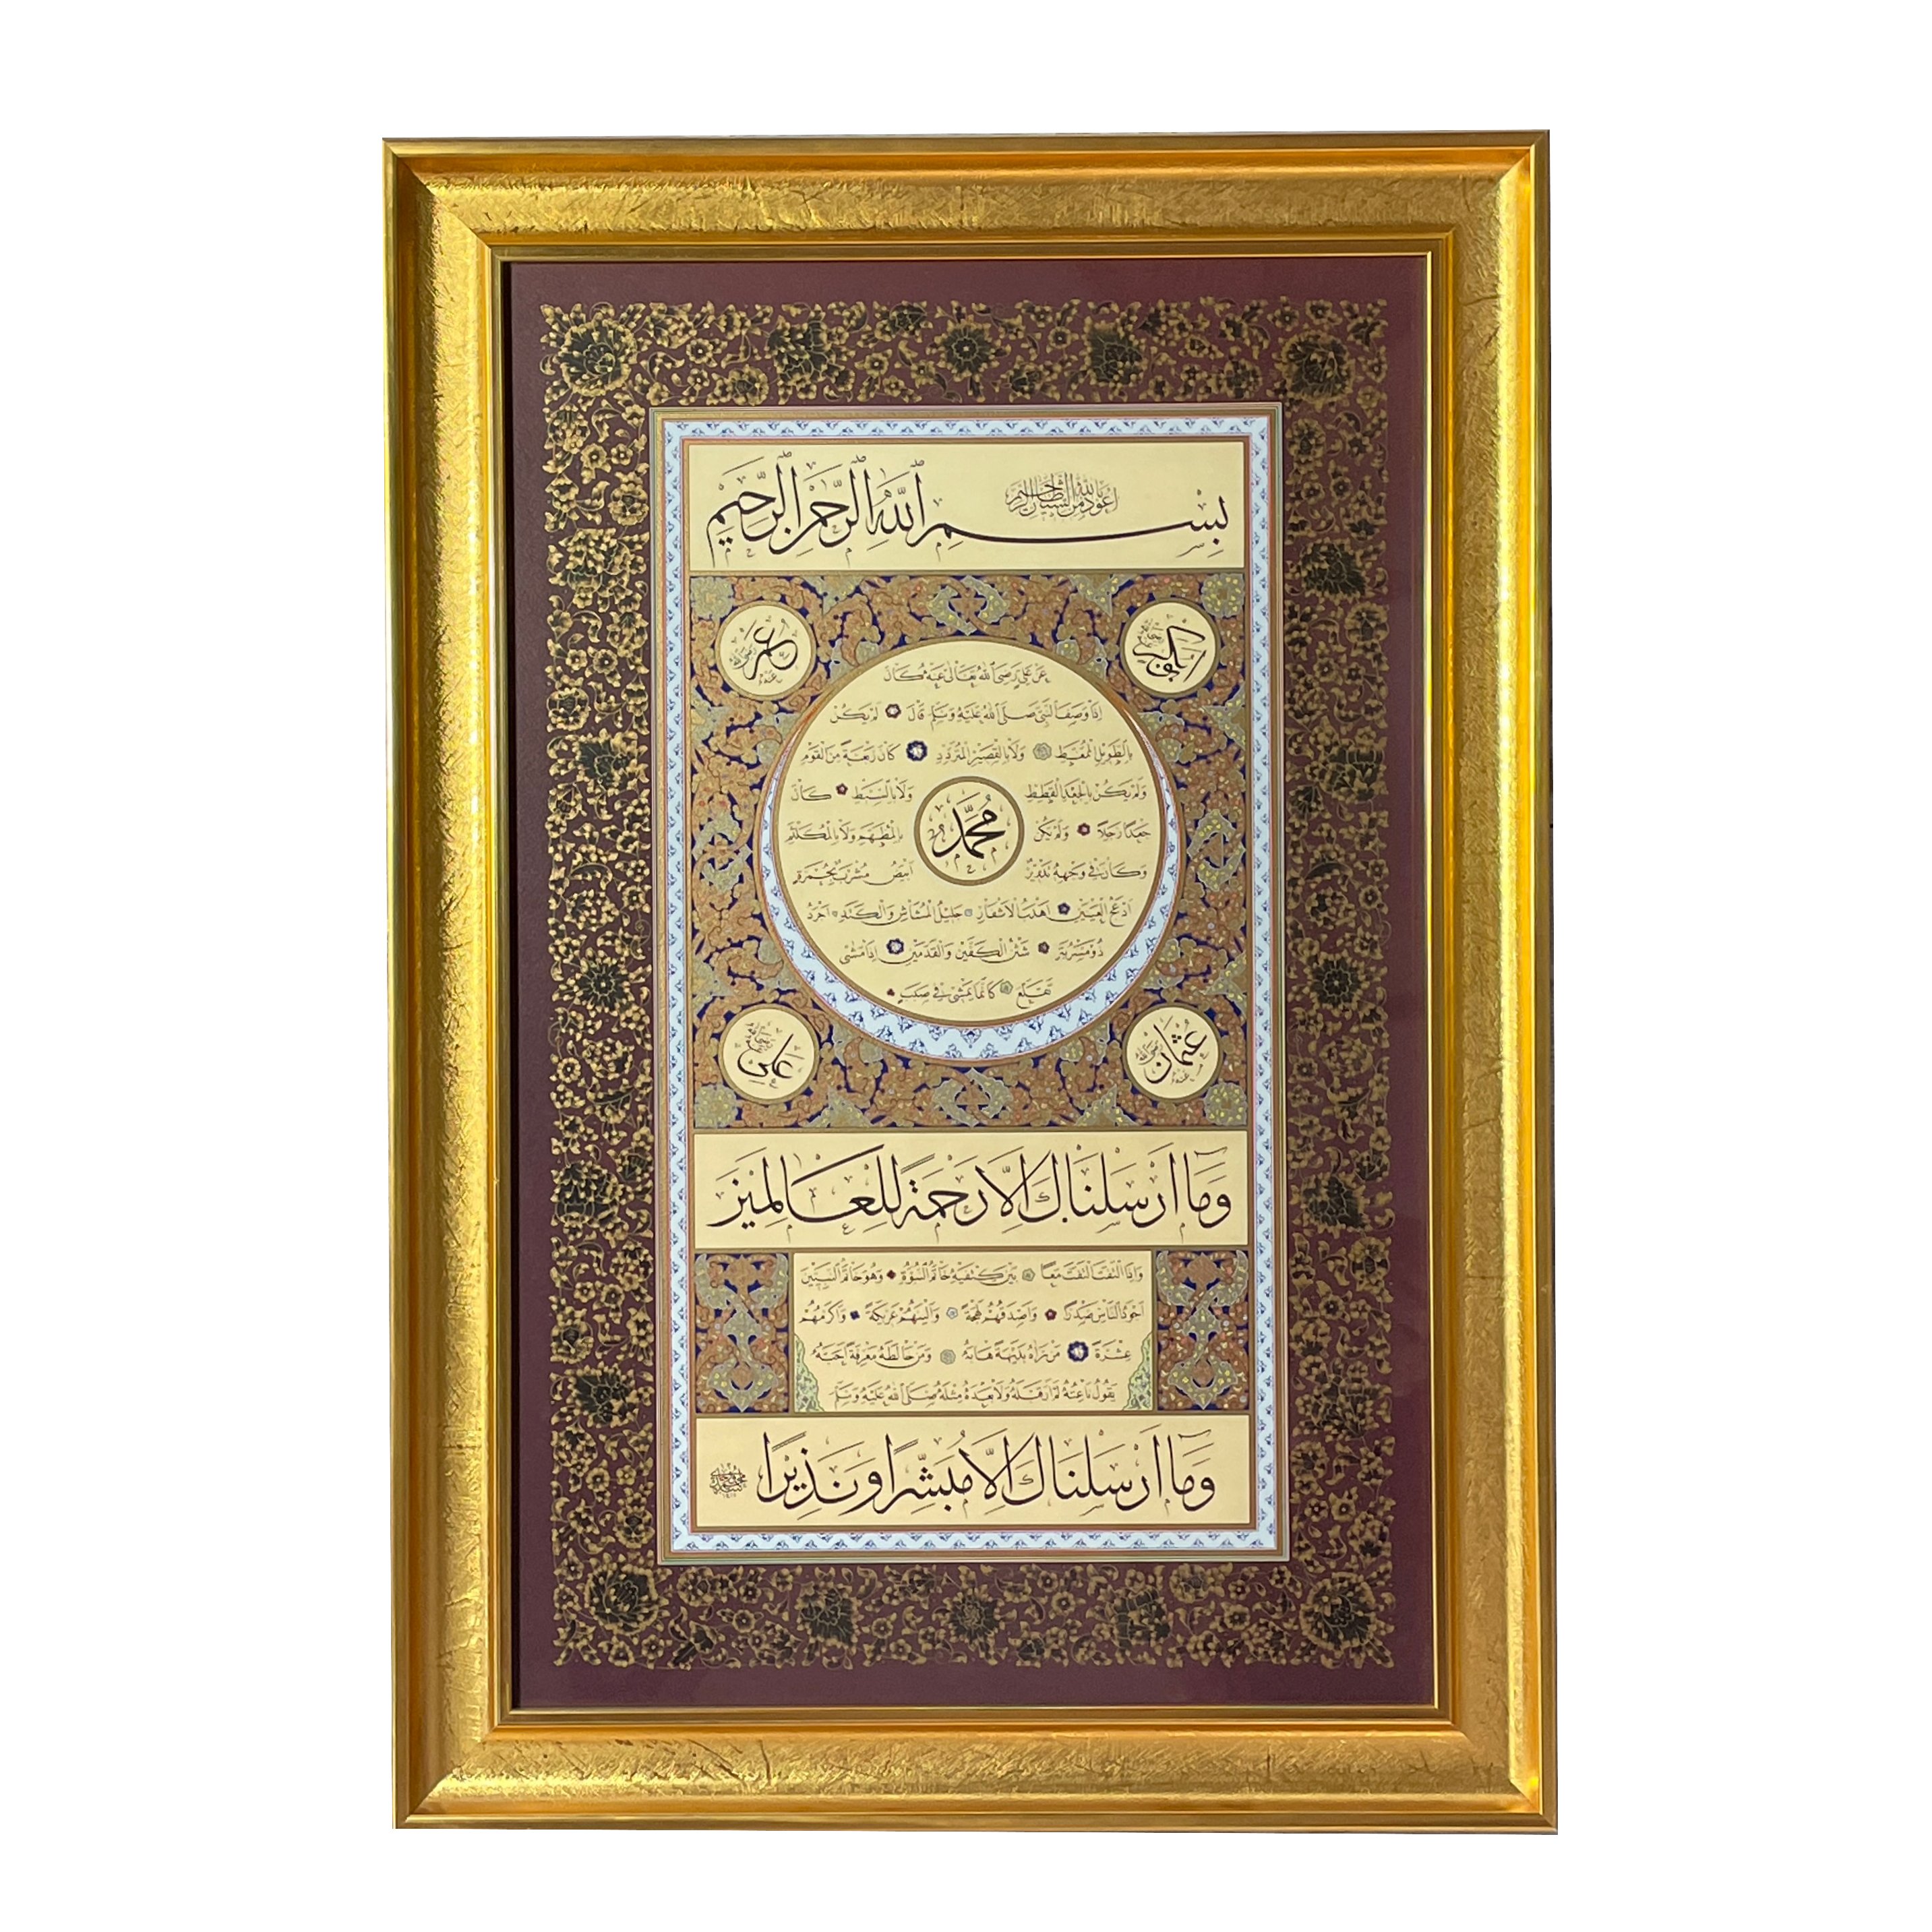 بِسْمِ اللّٰهِ الرَّحْمٰنِ الرَّحِيمِ
اعوذ بالله من الشيطان الرجيم
ابوبكر رضي الله عنه
عمر رضي الله عنه
عَنْ عَلِيٍّ رَضِيَ اللهُ تَعَالٰى عَنْهُ كَانَ
اِذَا وَصَفَ النَّبِيَّ صَلَّى اللهُ عَلَيْهِ وَسَلَّمَ قَالَ لَمْ يَكُنْ
بِالطَّوِيلِ الْمُمَّغِطِ وَلَا بِالْقَصِيرِ الْمُتَرَدِّدِ كَانَ رَبْعَةً مِنَ الْقَوْمِ
وَلَمْ يَكُنْ بِالْجَعْدِ الْقَطِطِ وَلَا بِالسَّبْطِ كَانَ
جَعْدًا رَجِلًا وَلَمْ يَكُنْ بِالْمُطَهَّمِ وَلَا بِالْمُكَلْثَمِ
مُحَمَّد
وَكَانَ فِي وَجْهِهِ تَدْوِيرٌ اَبْيَضُ مُشْرَبٌ بِحُمْرَةٍ
اَدْعَجُ الْعَيْنَيْنِ اَهْدَبُ الْاَشْفَارِ جَلِيلُ الْمُشَاشِ وَالْكَتَدِ اَجْرَدُ
ذُو مَسْرُبَةٍ شَثْنُ الْكَفَّيْنِ وَالْقَدَمَيْنِ اِذَا مَشٰى
تَقَلَّعَ كَاَنَّمَا يَمْشِي فِي صَبَبٍ
عثمان رضي الله عنه
علي رضي الله عنه
وَمَا اَرْسَلْنَاكَ اِلَّا رَحْمَةً لِلْعَالَمِينَ
وَاِذَا الْتَفَتَ الْتَفَتَ مَعًا بَيْنَ كَتِفَيْهِ خَاتَمُ النُّبُوَّةِ وَهُوَ خَاتَمُ النَّبِيِّينَ
اَجْوَدُ النَّاسِ صَدْرًا وَاَصْدَقُهُمْ لَهْجَةً وَاَلْيَنُهُمْ عَرِيكَةً وَاَكْرَمُهُمْ
عِشْرَةً مَنْ رَاٰهُ بَدِيهَةً هَابَهُ وَمَنْ خَالَطَهُ مَعْرِفَةً اَحَبَّهُ
يَقُولُ نَاعِتُهُ لَمْ اَرَ قَبْلَهُ وَلَا بَعْدَهُ مِثْلَهُ صَلَّى اللهُ عَلَيْهِ وَسَلَّمَ
وَمَا اَرْسَلْنَاكَ اِلَّا مُبَشِّرًا وَنَذِيرًا